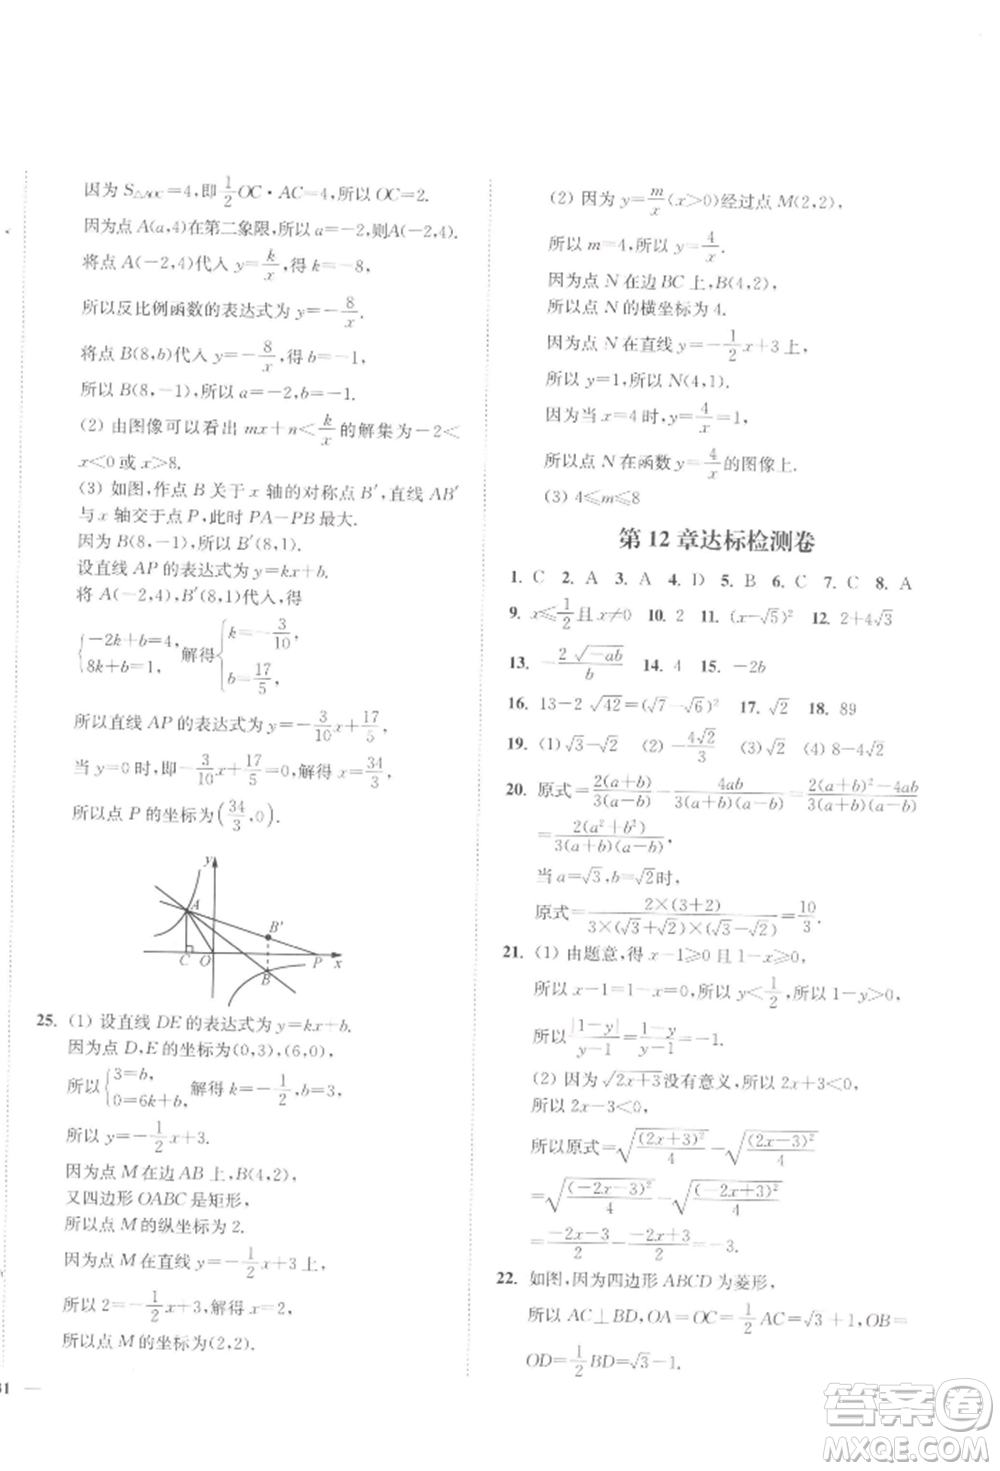 因为 S△AOC=4,即 1/2 OC·AC=4,所以 OC=2.
因为点 A(a,4)在第二象限,所以 a=-2,则A(-2,4).
将点 A(-2,4)代入 y=k/x,得 k=-8,
所以反比例函数的表达式为 y=-8/x.
将点 B(8,b)代入 y=-8/x,得 b=-1,
所以 B(8,-1),所以 a=-2,b=-1.
(2) 由图像可以看出 mx+n<k/x 的解集为-2<
x<0 或 x>8.
(3) 如图,作点 B 关于 x 轴的对称点 B′,直线 AB′
与 x 轴交于点 P,此时 PA-PB 最大.
因为 B(8,-1),所以 B′(8,1).
设直线 AP 的表达式为 y=kx+b.
将 A(-2,4),B′(8,1)代入,得
{-2k+b=4, 8k+b=1, 解得 {k=-3/10, b=17/5,
所以直线 AP 的表达式为 y=-3/10x+17/5,
当 y=0 时,即-3/10x+17/5=0,解得 x=34/3,
所以点 P 的坐标为(34/3,0).
y
A
B′
C O P x
B
25. (1) 设直线 DE 的表达式为 y=kx+b.
因为点 D,E 的坐标为(0,3),(6,0),
所以{3=b, 0=6k+b, 解得 k=-1/2, b=3,
所以 y=-1/2x+3.
因为点 M 在边 AB 上,B(4,2),
又四边形 OABC 是矩形,
所以点 M 的纵坐标为 2.
因为点 M 在直线 y=-1/2x+3 上,
所以 2=-1/2x+3,解得 x=2.
所以点 M 的坐标为(2,2).
(2) 因为 y=m/x(x>0)经过点 M(2,2),
所以 m=4,所以 y=4/x.
因为点 N 在边 BC 上,B(4,2),
所以点 N 的横坐标为 4.
因为点 N 在直线 y=-1/2x+3 上,
所以 N(4,1).
因为当 x=4 时,y=4/x=1,
所以点 N 在函数 y=4/x 的图像上.
(3) 4≤m≤8
第 12 章达标检测卷
1. C 2. A 3. A 4. D 5. B 6. C 7. C 8. A
9. x≤1/2且 x≠0 10. 2 11. (x-√5)² 12. 2+4√3
13. -2√-ab/b 14. 4 15. -2b
16. 13-2√42=(√7-√6)² 17. √2 18. 89
19. (1) √3-√2 (2) -4√2/3 (3) √2 (4) 8-4√2
20. 原式=2(a+b)/3(a-b)-4ab/3(a+b)(a-b)=2(a+b)²-4ab/3(a+b)(a-b)
=2(a²+b²)/3(a+b)(a-b).
当 a=√3,b=√2时,
原式=2×(3+2)/3×(√3+√2)×(√3-√2)=10/3.
21. (1) 由题意,得 x-1≥0 且 1-x≥0,
所以 x-1=1-x=0,所以 y<1/2,所以 1-y>0,
所以|1-y|/y-1=1-y/y-1=-1.
(2) 因为√2x+3没有意义,所以 2x+3<0,
所以 2x-3<0,
所以原式=√(2x+3)²/4-√(2x-3)²/4
=√(-2x-3)²/4-√(-2x+3)²/4
=-2x-3/2--2x+3/2=-3.
22. 如图,因为四边形 ABCD 为菱形,
所以 AC⊥BD,OA=OC=1/2AC=√3+1,OB=
OD=1/2BD=√3-1.
答案卷
MXQE.COM